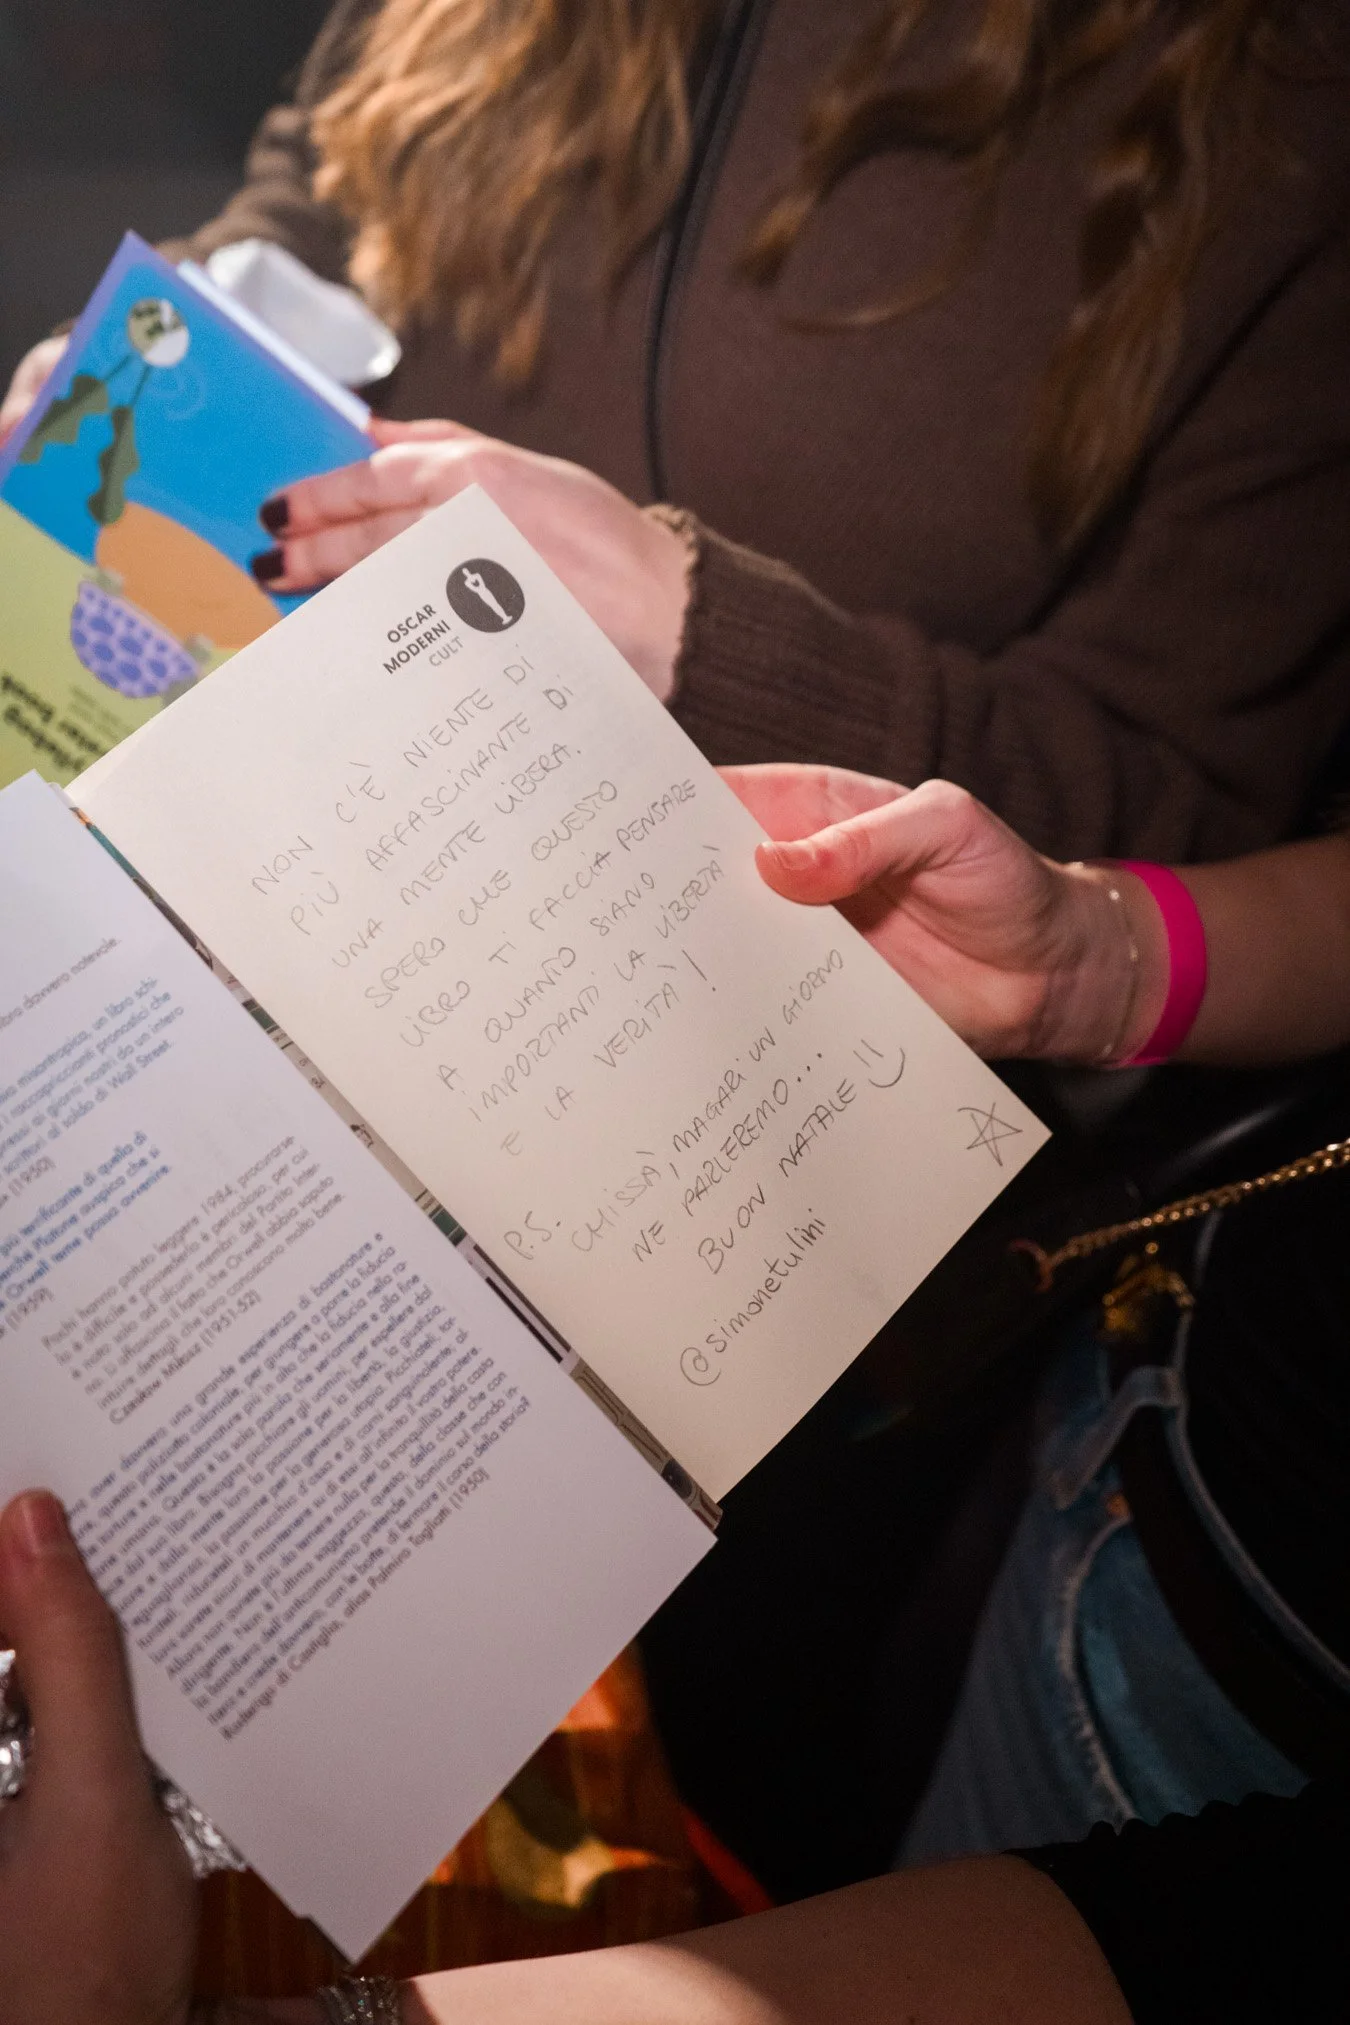 OSCAR
MODERNI
CULT
NON C'È NIENTE DI
PIÙ AFFASCINANTE DI
UNA MENTE LIBERA.
SPERO CHE QUESTO
LIBRO TI FACCIA PENSARE
A QUANTO SIANO
IMPORTANTI LA LIBERTÀ
E LA VERITÀ!
P.S.
CHISSÀ, MAGARI UN GIORNO
NE PARLEREMO...
BUON NATALE
@simonetulini
libro davvero notevole.
misantropica, un libro schi-
raccapriccianti pronostici che
ai giorni nostri da un intero
scrittori al soldo di Wall Street.
(1950)
più terrificante di quella di
perché Platone auspica che si
Orwell teme possa avvenire.
(1959)
Pochi hanno potuto leggere 1984, procurarse-
lo è difficile e possederlo è pericoloso, per cui
è noto solo ad alcuni membri del Partito Inter-
no. Li affascina il fatto che Orwell abbia saputo
intuire dettagli che loro conoscono molto bene.
Czesław Miłosz (1951-52)
aver davvero una grande esperienza di bastonature e
questo poliziotto coloniale, per giungere a porre la fiducia
torture e nelle bastonature più in alto che la fiducia nella ra-
umana. Questa è la sola parola che veramente e alla fine
dal suo libro. Bisogna picchiare gli uomini, per espellere dal
e dalla mente loro la passione per la libertà, la giustizia,
eguaglianza, la passione per la generosa utopia. Picchiateli, tor-
turateli, riduceteli un mucchio d'ossa e di carni sanguinolente; al-
lora sarete sicuri di mantenere su di essi all'infinito il vostro potere.
Allora non avrete più da temere nulla per la tranquillità della casta
dirigente. Non è l'ultima saggezza, questa, della classe che con
la bandiera dell'anticomunismo pretende il dominio sul mondo in-
tero e crede davvero, con le botte, di fermare il corso della storia?
Roderigo di Castiglia, alias Palmiro Togliatti (1950)